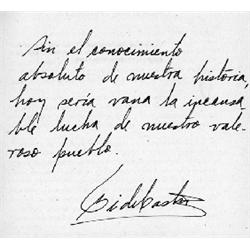 Sin el conocimiento
absoluto de nuestra historia,
hoy sería vana la incansa
ble lucha de nuestro vale-
roso pueblo.